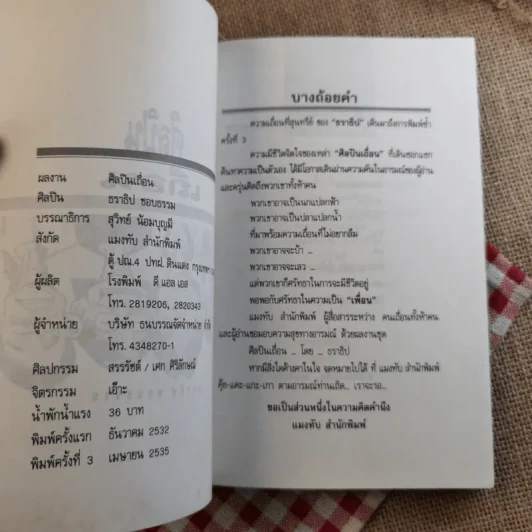 ผลงาน ศิลปินเถื่อน
ศิลปิน ธราธิป ชอบธรรม
บรรณาธิการ สุวิทย์ น้อมบุญมี
สังกัด แมงทับ สำนักพิมพ์
ตู้ ปณ.4 ปทฝ. ดินแดง กรุงเทพฯ
ผู้ผลิต โรงพิมพ์ ดี แอล เอส
โทร. 2819206, 2820343
ผู้จำหน่าย บริษัท ธนบรรณจัดจำหน่าย จำกัด
โทร. 4348270-1
ศิลปกรรม สรรรัชต์ / เศก ศิริลักษณ์
จิตรกรรม เอ๊าะ
น้ำพักน้ำแรง 36 บาท
พิมพ์ครั้งแรก ธันวาคม 2532
พิมพ์ครั้งที่ 3 เมษายน 2535
บางถ้อยคำ
ความเถื่อนที่สุนทรีย์ ของ "ธราธิป" เดินมาถึงการพิมพ์ซ้ำ
ครั้งที่ 3
ความมีชีวิตจิตใจของเหล่า "ศิลปินเถื่อน" ที่เดินซอกแซก
ค้นหาความเป็นตัวเอง ได้มีโอกาสเดินผ่านความคันในอารมณ์ของผู้อ่าน
และครุ่นคิดถึงพวกเขาทั้งห้าคน
พวกเขาอาจเป็นนกแปลกฟ้า
พวกเขาอาจเป็นปลาแปลกน้ำ
ที่มาพร้อมความเถื่อนที่ไม่อยากลืม
พวกเขาอาจจะบ้า ...
พวกเขาอาจจะเลว ...
แต่พวกเขาก็ศรัทธาในการจะมีชีวิตอยู่
พอพอกับศรัทธาในความเป็น "เพื่อน"
แมงทับ สำนักพิมพ์ ผู้สื่อสารระหว่าง คนเถื่อนทั้งห้าคน
และผู้อ่านขอมอบความสุขทางอารมณ์ ด้วยผลงานชุด
ศิลปินเถื่อน ... โดย ... ธราธิป
หากมีสิ่งใดค้างคาในใจ จดหมายไปได้ ที่ แมงทับ สำนักพิมพ์
คุ้ย-แคะ-แกะ-เกา ตามอารมณ์ท่านเถิด... เราจะรอ...
ขอเป็นส่วนหนึ่งในความคิดคำนึง
แมงทับ สำนักพิมพ์